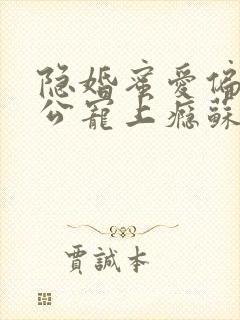 隐婚蜜爱偏
公寵上瘾蘇
賈誠本